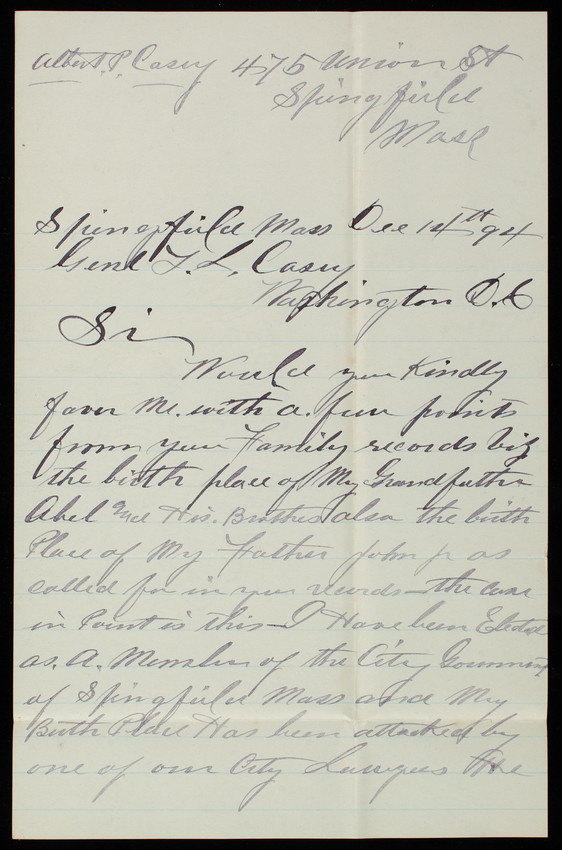 Albert. P. Casey 475 Union St
Springfield
Mass
Springfield Mass Dec 14th 94
Genl T. L. Casey
Washington D.C
Sir
Would you Kindly
favor Me. with a. few points
from your Family records viz
the birth place of My Grandfather
Abel and His. Brothers also the birth
Place of My Father John Jr as
called for in your records - the case
in Point is this - I Have been Elected
as. A. Member of the City Government
of Springfield Mass and My
Birth Place Has been attacked by
one of our City Lawyers the